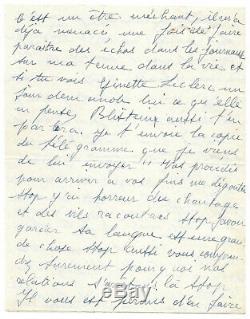 C'est un être méchant, il m'a
déjà menacé une fois de faire
paraître des échos dans les journaux
sur ma tenue dans la vie et
si tu vois Ginette Leclerc un
jour demande lui ce qu'elle
en pense, Blistène aussi t'en
parlera. Je t'envoie la copie
de télégramme que je viens
de lui envoyer " Vos procédés
pour arriver à vos fins me dégoûte
Stop j'ai horreur du chantage
et des vils racontars Stop savoir
garder sa langue est une grande
chose Stop aussi vous comprendrez
surement pourquoi nos
relations s'arrêtent là Stop
Il vous est permis d'en faire